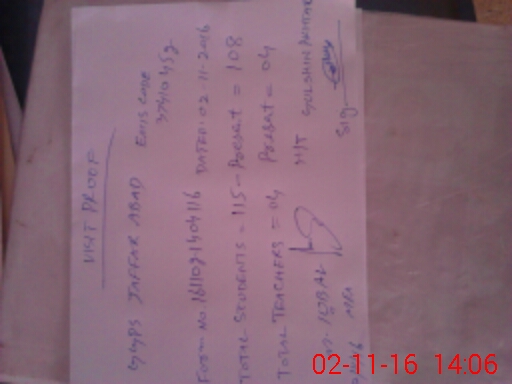 VISIT PROOF
GGPS JAFFAR ABAD EMIS CODE
37410452
Form No. 1611021404116 DATED: 02-11-2016
TOTAL STUDENTS = 115 - Present = 108
TOTAL TEACHERS = 04 Present = 04
H/T GULSHAN
IQBAL Sig
MEA
02-11-16 14:06